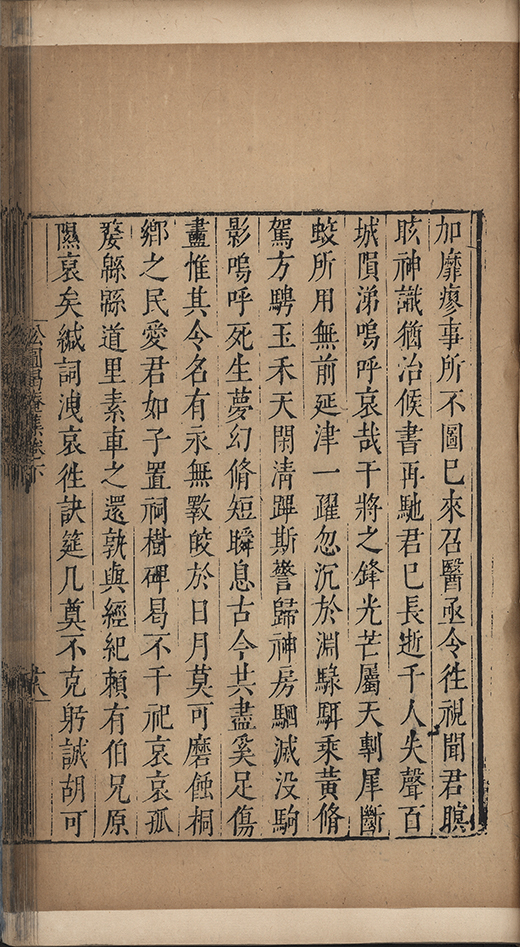 加靡瘳事所不圖已來召醫亟令徃視聞君瞑
眩神識猶治候書再馳君已長逝千人失聲百
城隕涕嗚呼哀哉干將之鋒光芒屬天剸犀斷
蛟所用無前延津一躍忽沉於淵騄駬乘黃脩
駕方騁玉禾天閑清蹕斯警歸神房駟滅没駒
影嗚呼死生夢幻脩短瞬息古今共盡奚足傷
盡惟其令名有永無斁皎於日月莫可磨蝕桐
鄉之民愛君如子置祠樹碑曷不千祀哀哀孤
嫠緜緜道里素車之還孰與經紀頼有伯兄原
隰哀矣緘詞洩哀徃訣筵几奠不克躬誠胡可
松圓偈庵集卷下